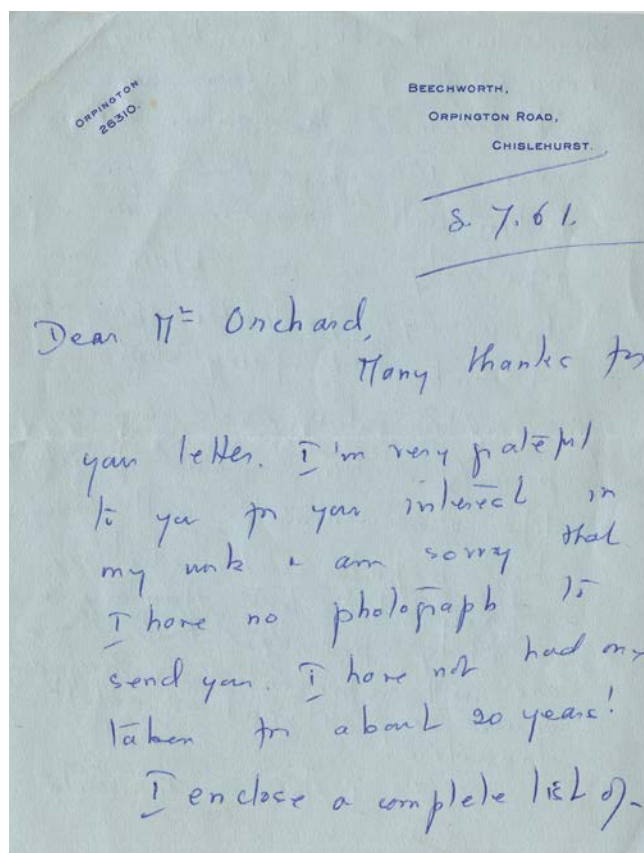 ORPINGTON
26310.
BEECHWORTH,
ORPINGTON ROAD,
CHISLEHURST.
8. 7. 61.
Dear Mr Orchard,
Many thanks for
your letter. I'm very grateful
to you for your interest in
my work & am sorry that
I have no photograph to
send you. I have not had one
taken for about 20 years!
I enclose a complete list of